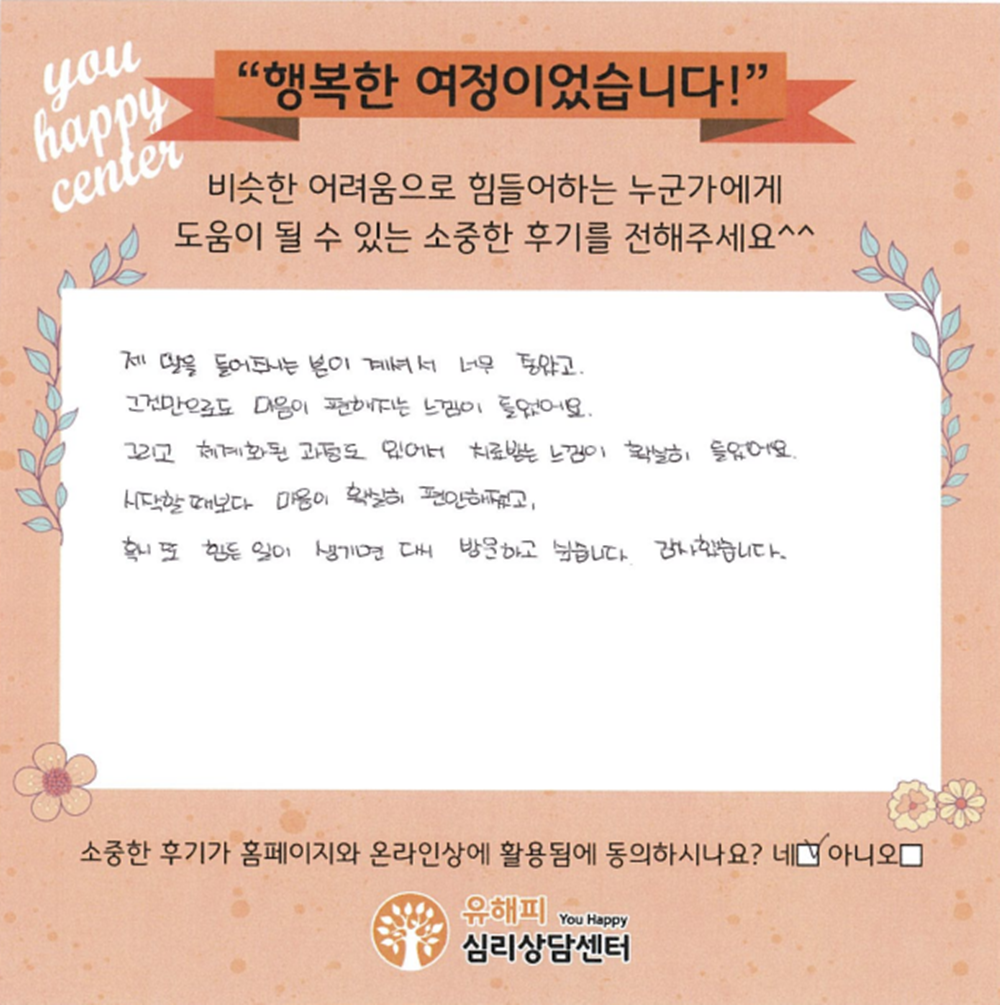 you
happy
center
“행복한 여정이었습니다!”
비슷한 어려움으로 힘들어하는 누군가에게
도움이 될 수 있는 소중한 후기를 전해주세요^^
제 말을 들어주시는 분이 계셔서 너무 좋았고.
그것만으로도 마음이 편해지는 느낌이 들었어요.
그리고 체계화된 과정도 있어서 치료받는 느낌이 확실히 들었어요.
시작할 때보다 마음이 확실히 편안해졌고,
혹시 또 힘든 일이 생기면 다시 방문하고 싶습니다. 감사했습니다.
소중한 후기가 홈페이지와 온라인상에 활용됨에 동의하시나요? 네☑ 아니오☐
유해피 You Happy
심리상담센터